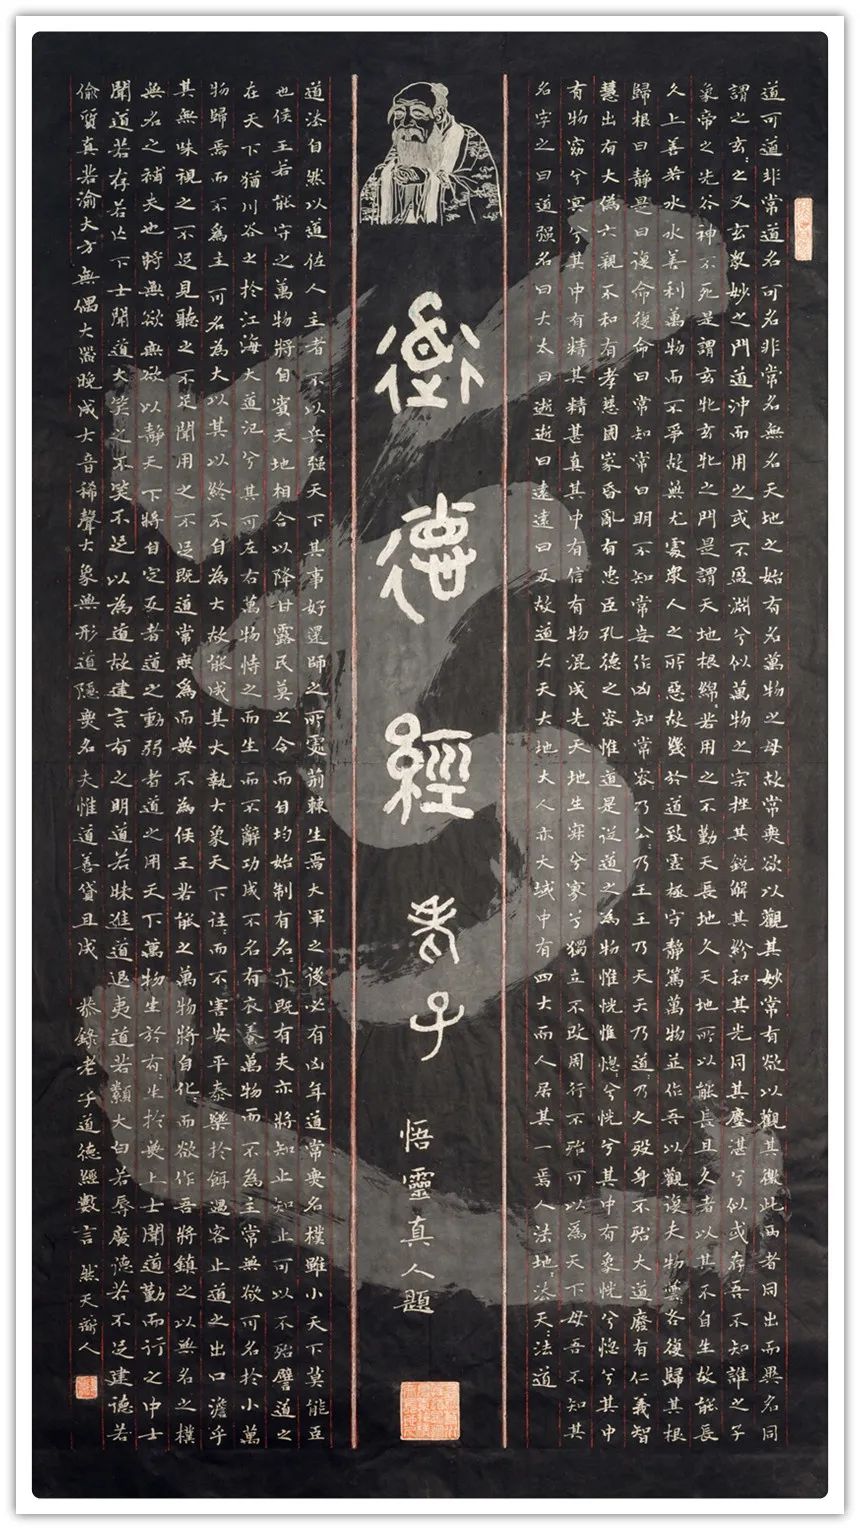 道可道非常道名可名非常名無名天地之始有名萬物之母故常無欲以觀其妙常有欲以觀其徼此兩者同出而異名同
謂之玄:之又玄衆妙之門道沖而用之或不盈淵兮似萬物之宗挫其銳解其紛和其光同其塵湛兮似或存吾不知誰之子
象帝之先谷神不死是謂玄牝玄牝之門是謂天地根綿:若用之不勤天長地久天地所以能長且久者以其不自生故能長
久上善若水水善利萬物而不爭故無尤處衆人之所惡故幾於道致虛極守靜篤萬物並作吾以觀復夫物芸各復歸其根
歸根曰靜是曰復命復命曰常知常曰明不知常妄作凶知常容乃公:乃王王乃天天乃道:乃久歿身不殆大道廢有仁義智
慧出有大偽六親不和有孝慈國家昏亂有忠臣孔德之容惟道是從道之為物惟恍惟惚:兮恍兮其中有象恍兮惚兮其中
有物窈兮冥兮其中有精其精甚真其中有信有物混成先天地生寂兮寥兮獨立不改周行不殆可以為天下母吾不知其
名字之曰道强名曰大大曰逝逝曰遠遠曰反故道大天大地大人亦大域中有四大而人居其一焉人法地:法天:法道
道德經 老子
悟靈真人題
道法自然以道佐人主者不以兵强天下其事好還師之所處荊棘生焉大軍之後必有凶年道常無名樸雖小天下莫能臣
也侯王若能守之萬物將自賓天地相合以降甘露民莫之令而自均始制有名:亦既有夫亦將知止知止可以不殆譬道之
在天下猶川谷之於江海大道氾兮其可左右萬物恃之而生而不辭功成不名有衣養萬物而不為主常無欲可名於小萬
物歸焉而不為主可名為大以其以終不自為大故能成其大執大象天下往:而不害安平泰樂於餌過客止道之出口澹乎
其無味視之不足見聽之不足聞用之不足既道常無為而無不為侯王若能之萬物將自化而欲作吾將鎮之以無名之樸
無名之補夫也將無欲無欲以靜天下將自定反者道之動弱者道之用天下萬物生於有:生於無上士聞道勤而行之中士
聞道若存若亡下士聞道大笑之不笑不足以為道故建言有之明道若昧進道退夷道若纇大白若辱廣德若不足建德若
偷質真若渝大方無偶大器晚成大音稀聲大象無形道隱無名夫惟道善貸且成 恭錄老子道德經數言